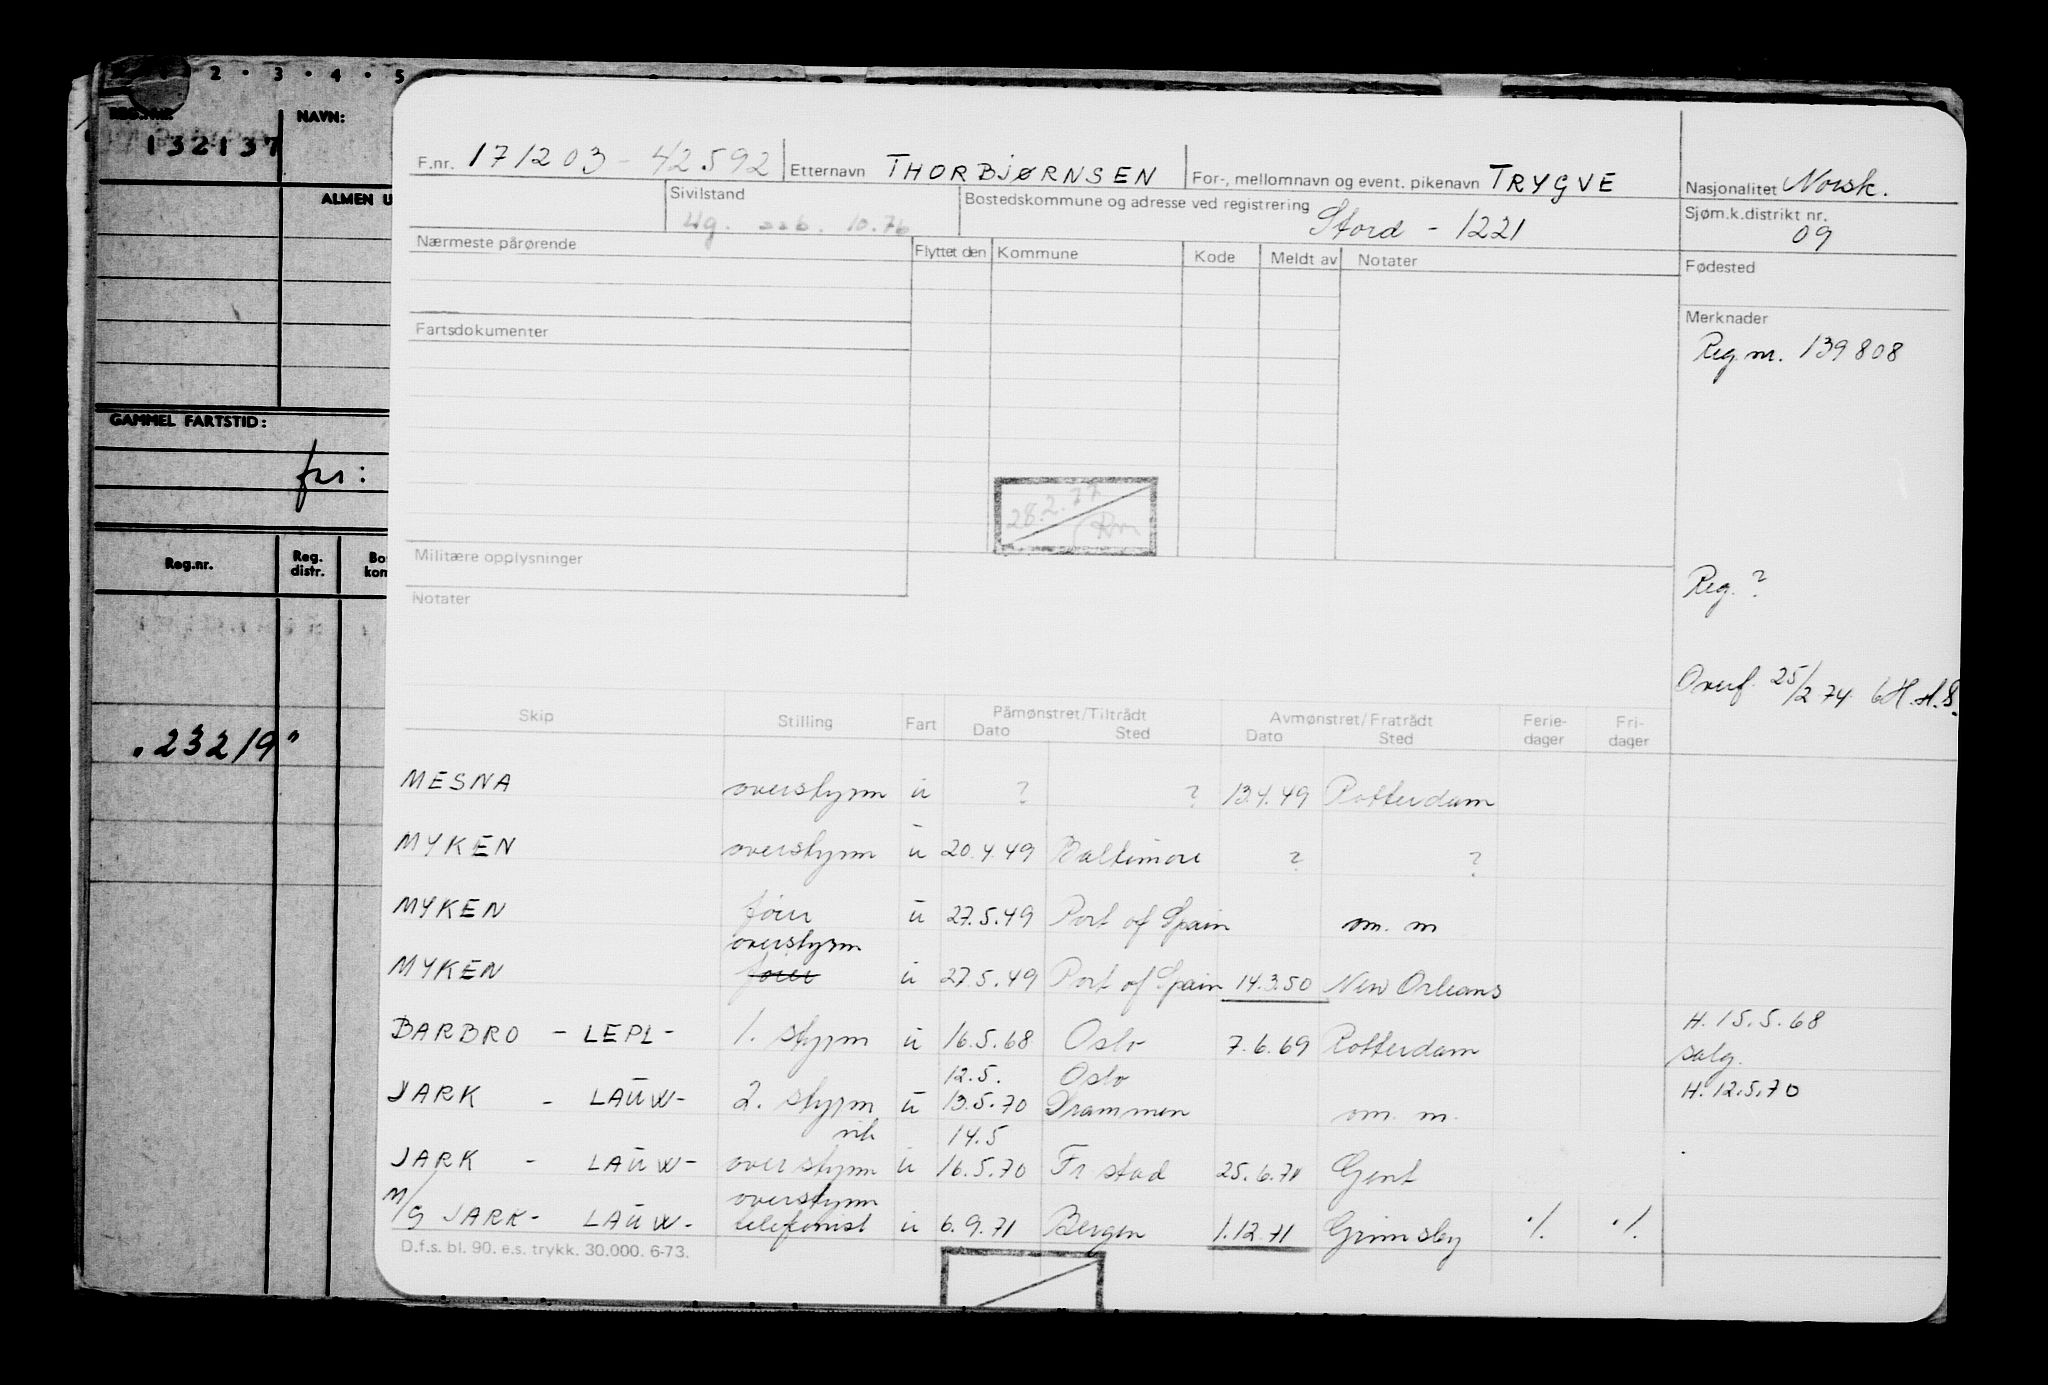 2 · 3 · 4 · 5
REG.NR. NAVN:
132137
ALMEN U
GAMMEL FARTSTID:
frs:
Reg.nr. Reg. distr. Bos kom
"23219"
F.nr. 171203-42592 Etternavn THORBJØRNSEN For-, mellomnavn og event. pikenavn TRYGVE Nasjonalitet Norsk.
Sivilstand Ug. 10.76 Bostedskommune og adresse ved registrering Stord - 1221 Sjøm.k.distrikt nr. 09
Nærmeste pårørende Flyttet den Kommune Kode Meldt av Notater Fødested
Fartsdokumenter Merknader
Reg.nr. 139808
28.2.77
Militære opplysninger
Reg. ?
Notater
Overf. 25/2.74
Skip Stilling Fart Påmønstret/Tiltrådt Avmønstret/Fratrådt Ferie- Fri-
Dato Sted Dato Sted dager dager
MESNA overstyrm u ? ? 13.4.49 Rotterdam
MYKEN overstyrm u 20.4.49 Baltimore ? ?
MYKEN fører u 27.5.49 Port of Spain om. m
overstyrm
MYKEN fører u 27.5.49 Port of Spain 14.3.50 New Orleans
BARBRO - LEPL - 1. styrm u 16.5.68 Oslo 7.6.69 Rotterdam H. 15.5.68
salg.
12.5. Oslo
JARK - LAUW - 2. styrm u 13.5.70 Drammen om. m. H. 12.5.70
14.5
JARK - LAUW - overstyrm u 16.5.70 Fr stad 25.6.71 Gent
overstyrm
M/S JARK - LAUW - telefonist u 6.9.71 Bergen 1.12.71 Grimsby ·/. ·/.
D.f.s. bl. 90. e.s. trykk. 30.000. 6-73.